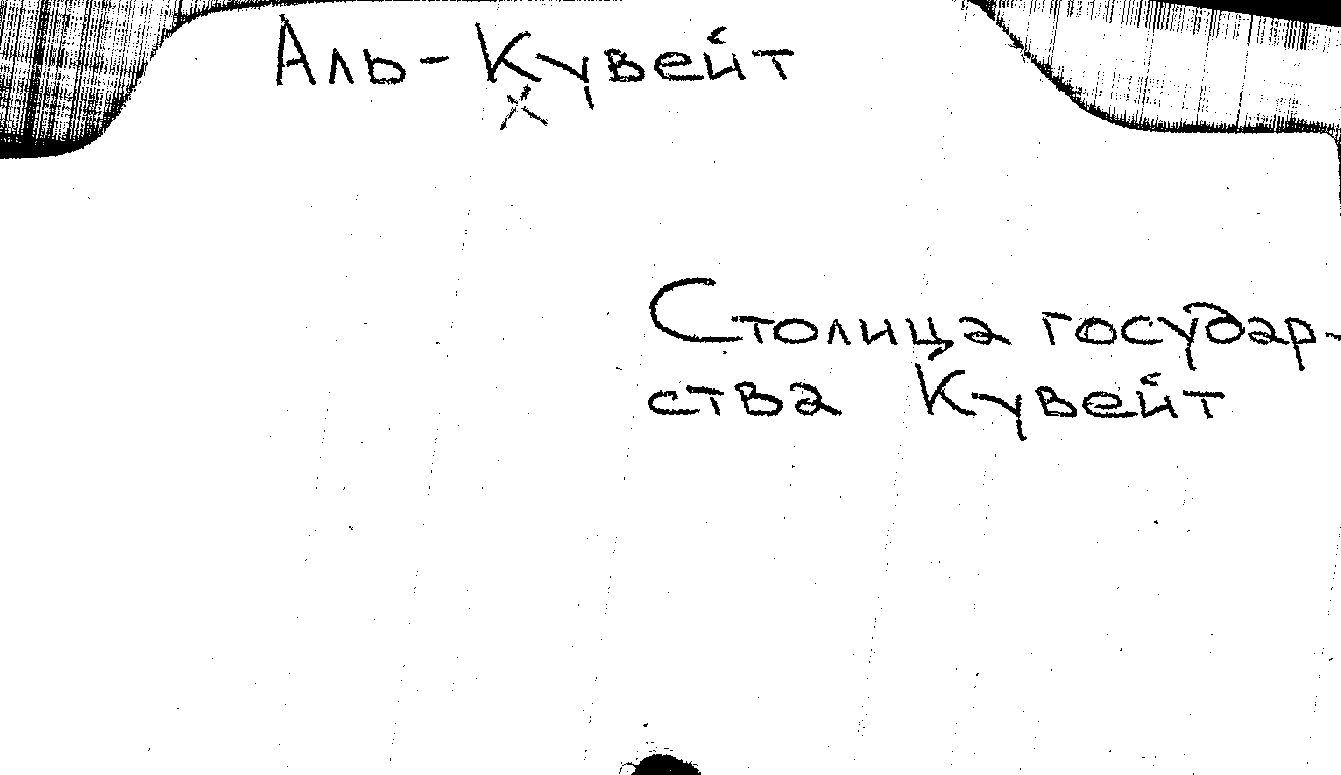 Аль-Кувейт
х
Столица государ-
ства Кувейт